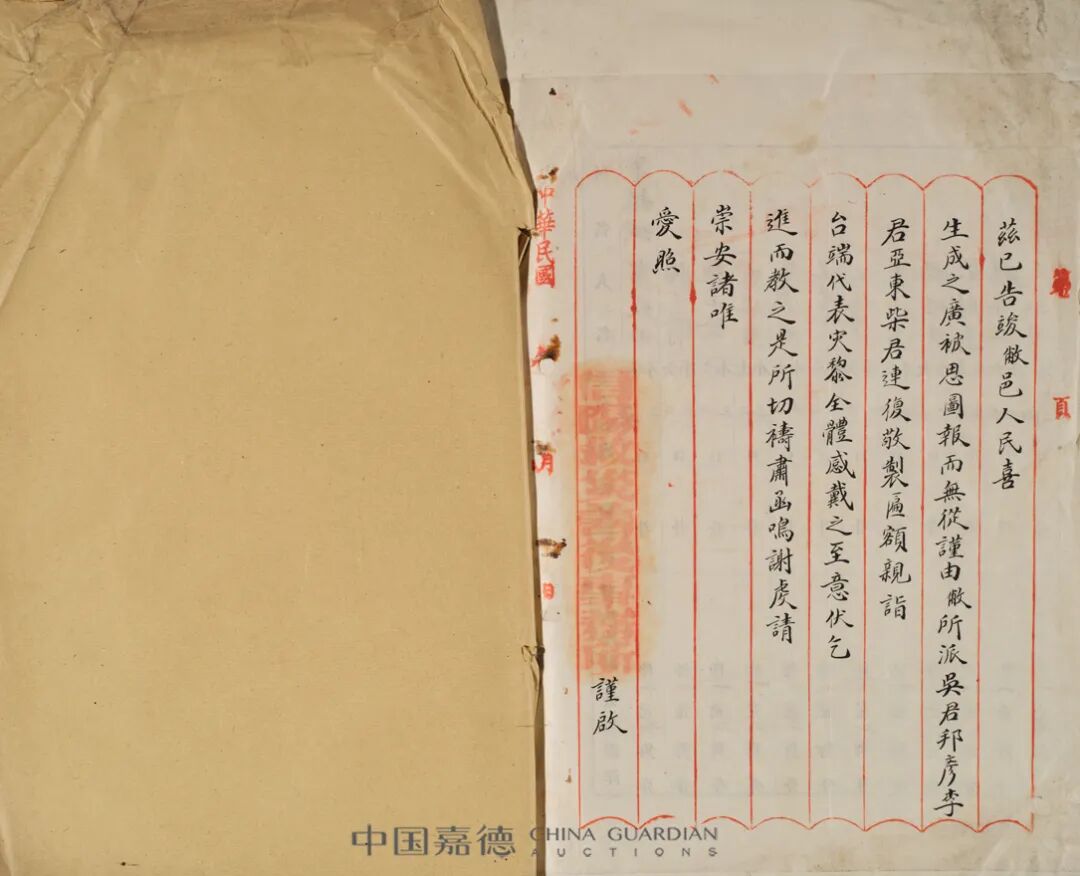 第 頁
茲已告竣敝邑人民喜
生成之廣被思圖報而無從謹由敝所派吳君邦彥李
君亞東柴君連復敬製匾額親詣
台端代表灾黎全體感戴之至意伏乞
進而教之是所切禱肅函鳴謝虔請
崇安諸唯
愛照
謹啟
中華民國
年
月
日
中国嘉德 CHINA GUARDIAN
AUCTIONS